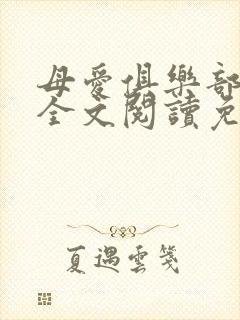 母愛俱樂部
全文閱讀免
夏遇雲箋